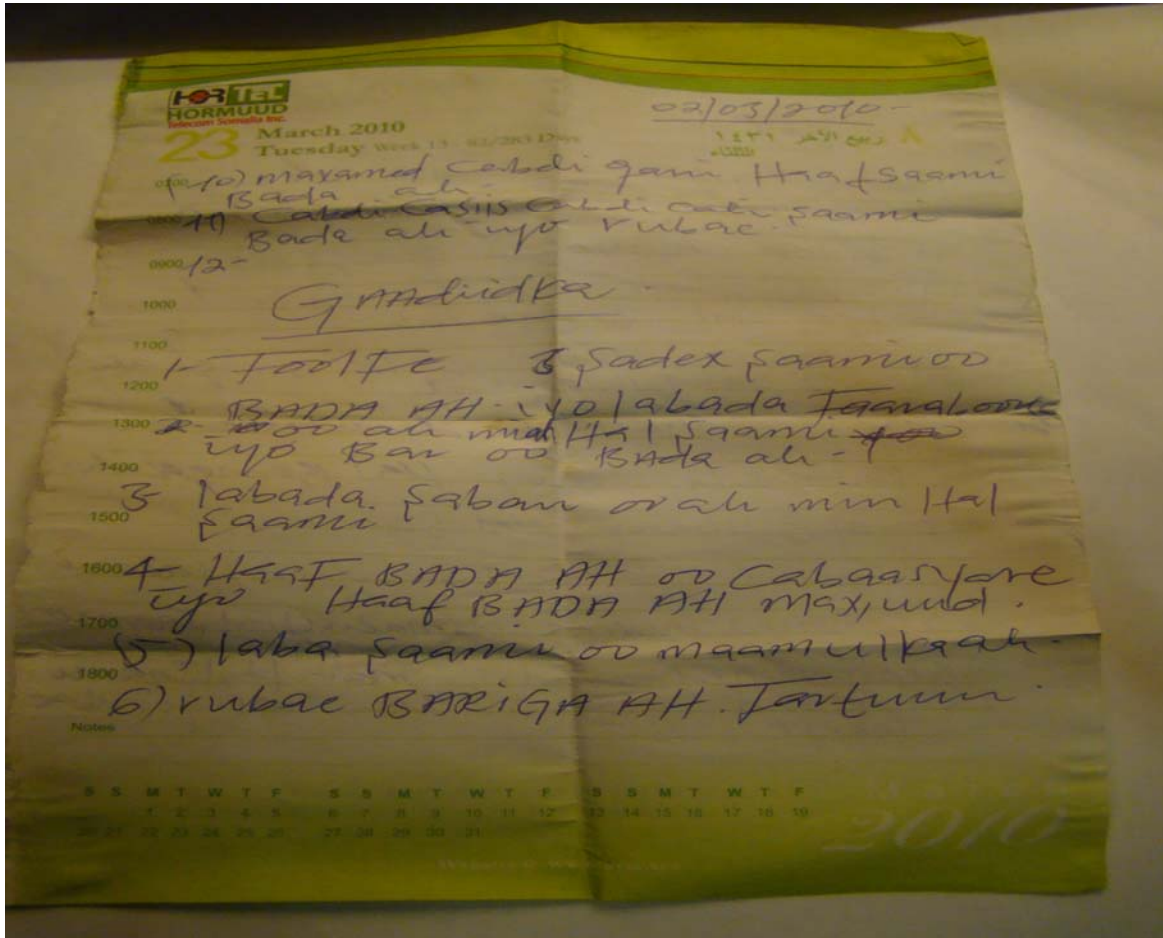 HORTEL
HORMUUD
Telecom Somalia Inc.
02/03/2010
23 March 2010
ربيع الآخر ١٤٣١
Tuesday Week 13 82/283 Days
الثلاثاء
0700 10) maxamed Cabdi gani Haaf Saami
Bada ah.
0800 11) Cabdi Casiis Cabdi Saami
Bada ah iyo rubac.
0900 12-
1000 GAAdiidka
1100
1- Foolfe 3 Sadex Saami oo
1200
BADA AH - iyo labada
1300 2- oo ah midi Hal Saami
iyo Bar oo BAda ah -
1400
3- labada Saban oo ah min Hal
1500 Saami
1600 4- HaaF BADA AH oo Cabaasyare
iyo Haaf BADA AH maxuud.
1700
(5) laba Saami oo maamulka ah.
1800
6) rubac BARIGA AH.
Notes
S S M T W T F S S M T W T F S S M T W T F
1 2 3 4 5 6 7 8 9 10 11 12 13 14 15 16 17 18 19
20 21 22 23 24 25 26 27 28 29 30 31
March
2010